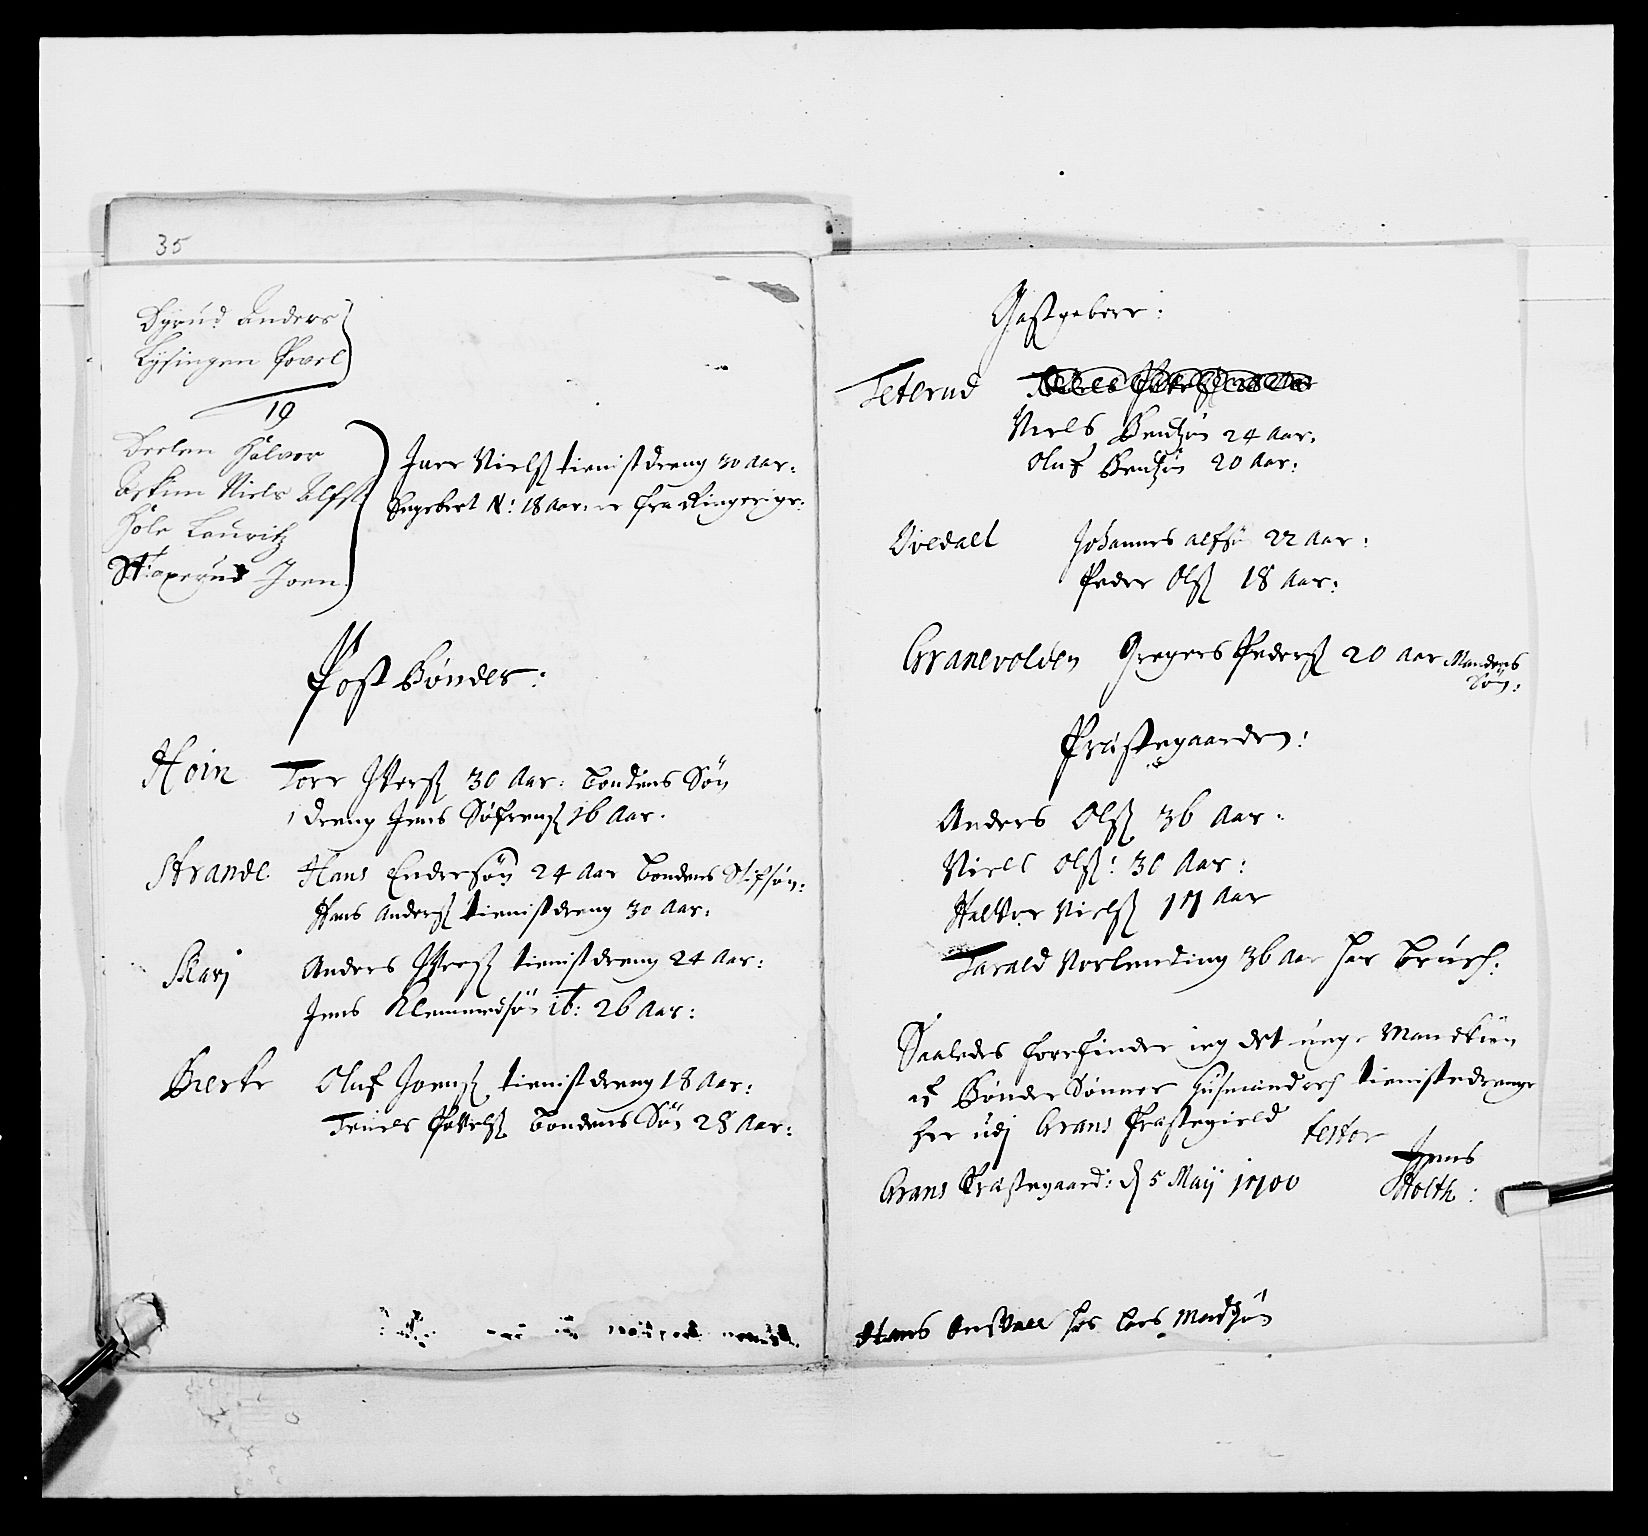 35
Dÿrud Anders
Lysingen Povel
19
Deelen Halvor
Askim Niels Alfs.
Hole Lauritz
Skiaperud Joen
Iver Nielss tienist dreng 30 Aar:
Segebert N: 18 Aar: er fra Ringerige:
Post Bønder:
Hoin Torr Iverss 30 Aar: bondens Søn
1 dreng Jens Søfrenss 16 Aar.
Strande Hans Endersøn 24 Aar bondens Stifsøn:
Hans Anderss tienistdreng 30 Aar:
Skarj Anders Iverss tienistdreng 24 Aar:
Jens Klemmedsøn it: 26 Aar:
Bierke Oluf Joenss tienistdreng 18 Aar:
Truels Povelss bondens Søn 28 Aar:
Gestgebere:
Teterud
Niels Bentsøn 24 Aar.
Oluf Bentsøn 20 Aar:
Dvedalt Johannes Alfsøn 22 Aar:
Peder Olss 18 Aar:
Granevolden Gregers Pederss 20 Aar Mandens
Søn:
Præstegaarden:
Anders Olss 36 Aar:
Niels Olss: 30 Aar:
Halvor Nielss 17 Aar
Tarald Norlending 36 Aar har
Saaledes forefindes ieg det unge Mandkiøn
af Bønder Sønner Husmænd och tienistedrenge
her udj Grans Præstegield testor
Grans Præstegaard: d 5 Maij 1700 Jens
Holth:
Hans hos Lars Madtzøn